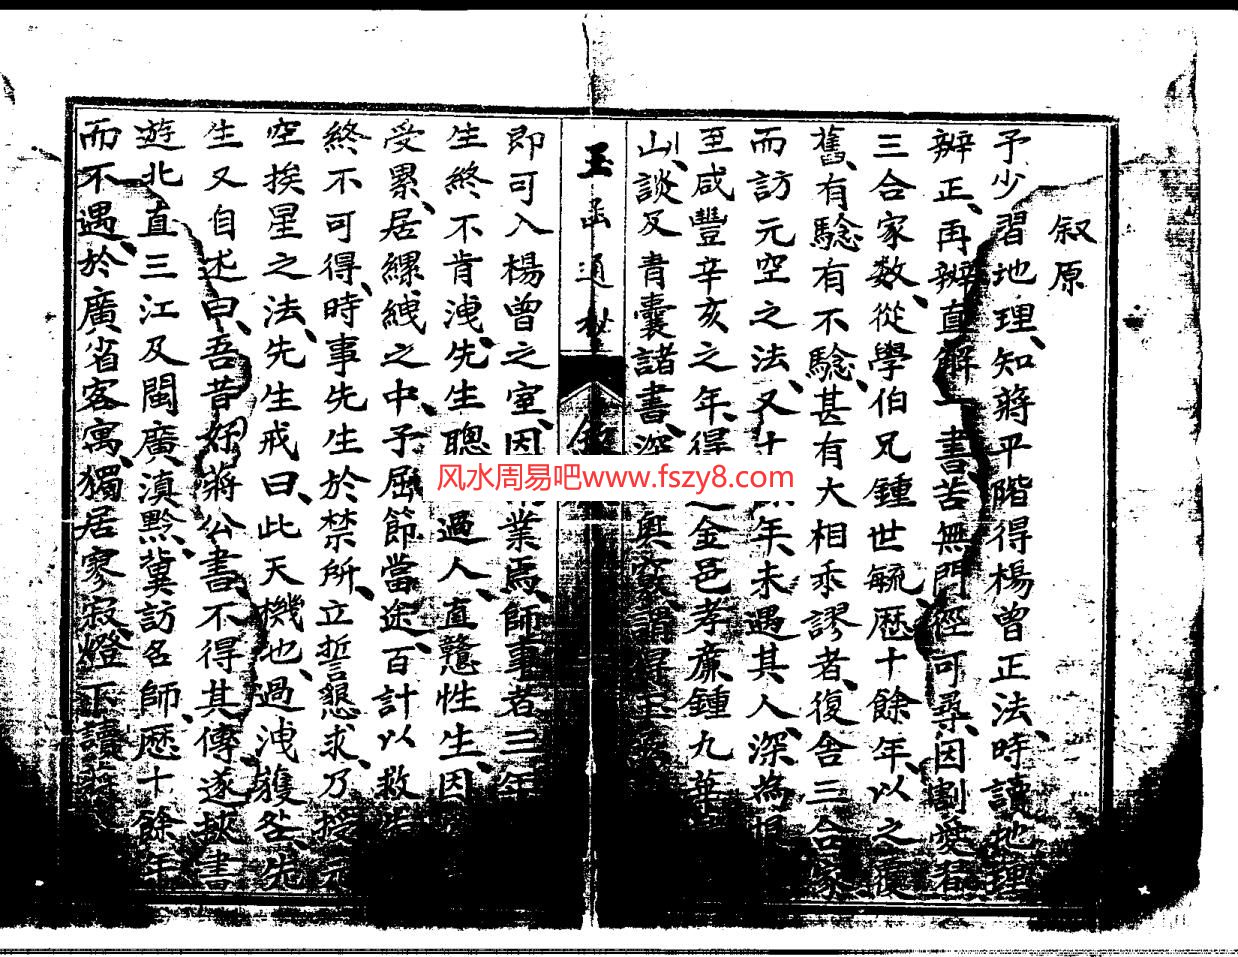 叙原
予少習地理、知蔣平階得楊曾正法、時讀地理
辨正、再辨直解一書、苦無門徑可尋、因割愛看
三合家数、從學伯兄鍾世毓、歷十餘年、以之覆
舊、有驗有不驗、甚有大相乖謬者、復舍三合家
而訪元空之法、又十年、未遇其人、深為恨
至咸豐辛亥之年、得之金邑孝廉鍾九華
山、談及青囊諸書、深奧
玉函通秘
叙
即可入楊曾之室、因業焉、師事者三年
生終不肯洩、先生聰過人、直戇性生、因
受累、居縲絏之中、予屈節當途、百計以救
終不可得、時事先生於禁所、立誓懇求、乃授元
空挨星之法、先生戒曰、此天機也、過洩獲咎、先
生又自述曰、吾昔好蔣公書、不得其傳、遂挾書
遊北直三江及閩廣滇黔冀訪名師、歷十餘年
而不遇、於廣省客寓、獨居寥寂、燈下讀蔣
风水周易吧www.fszy8.com